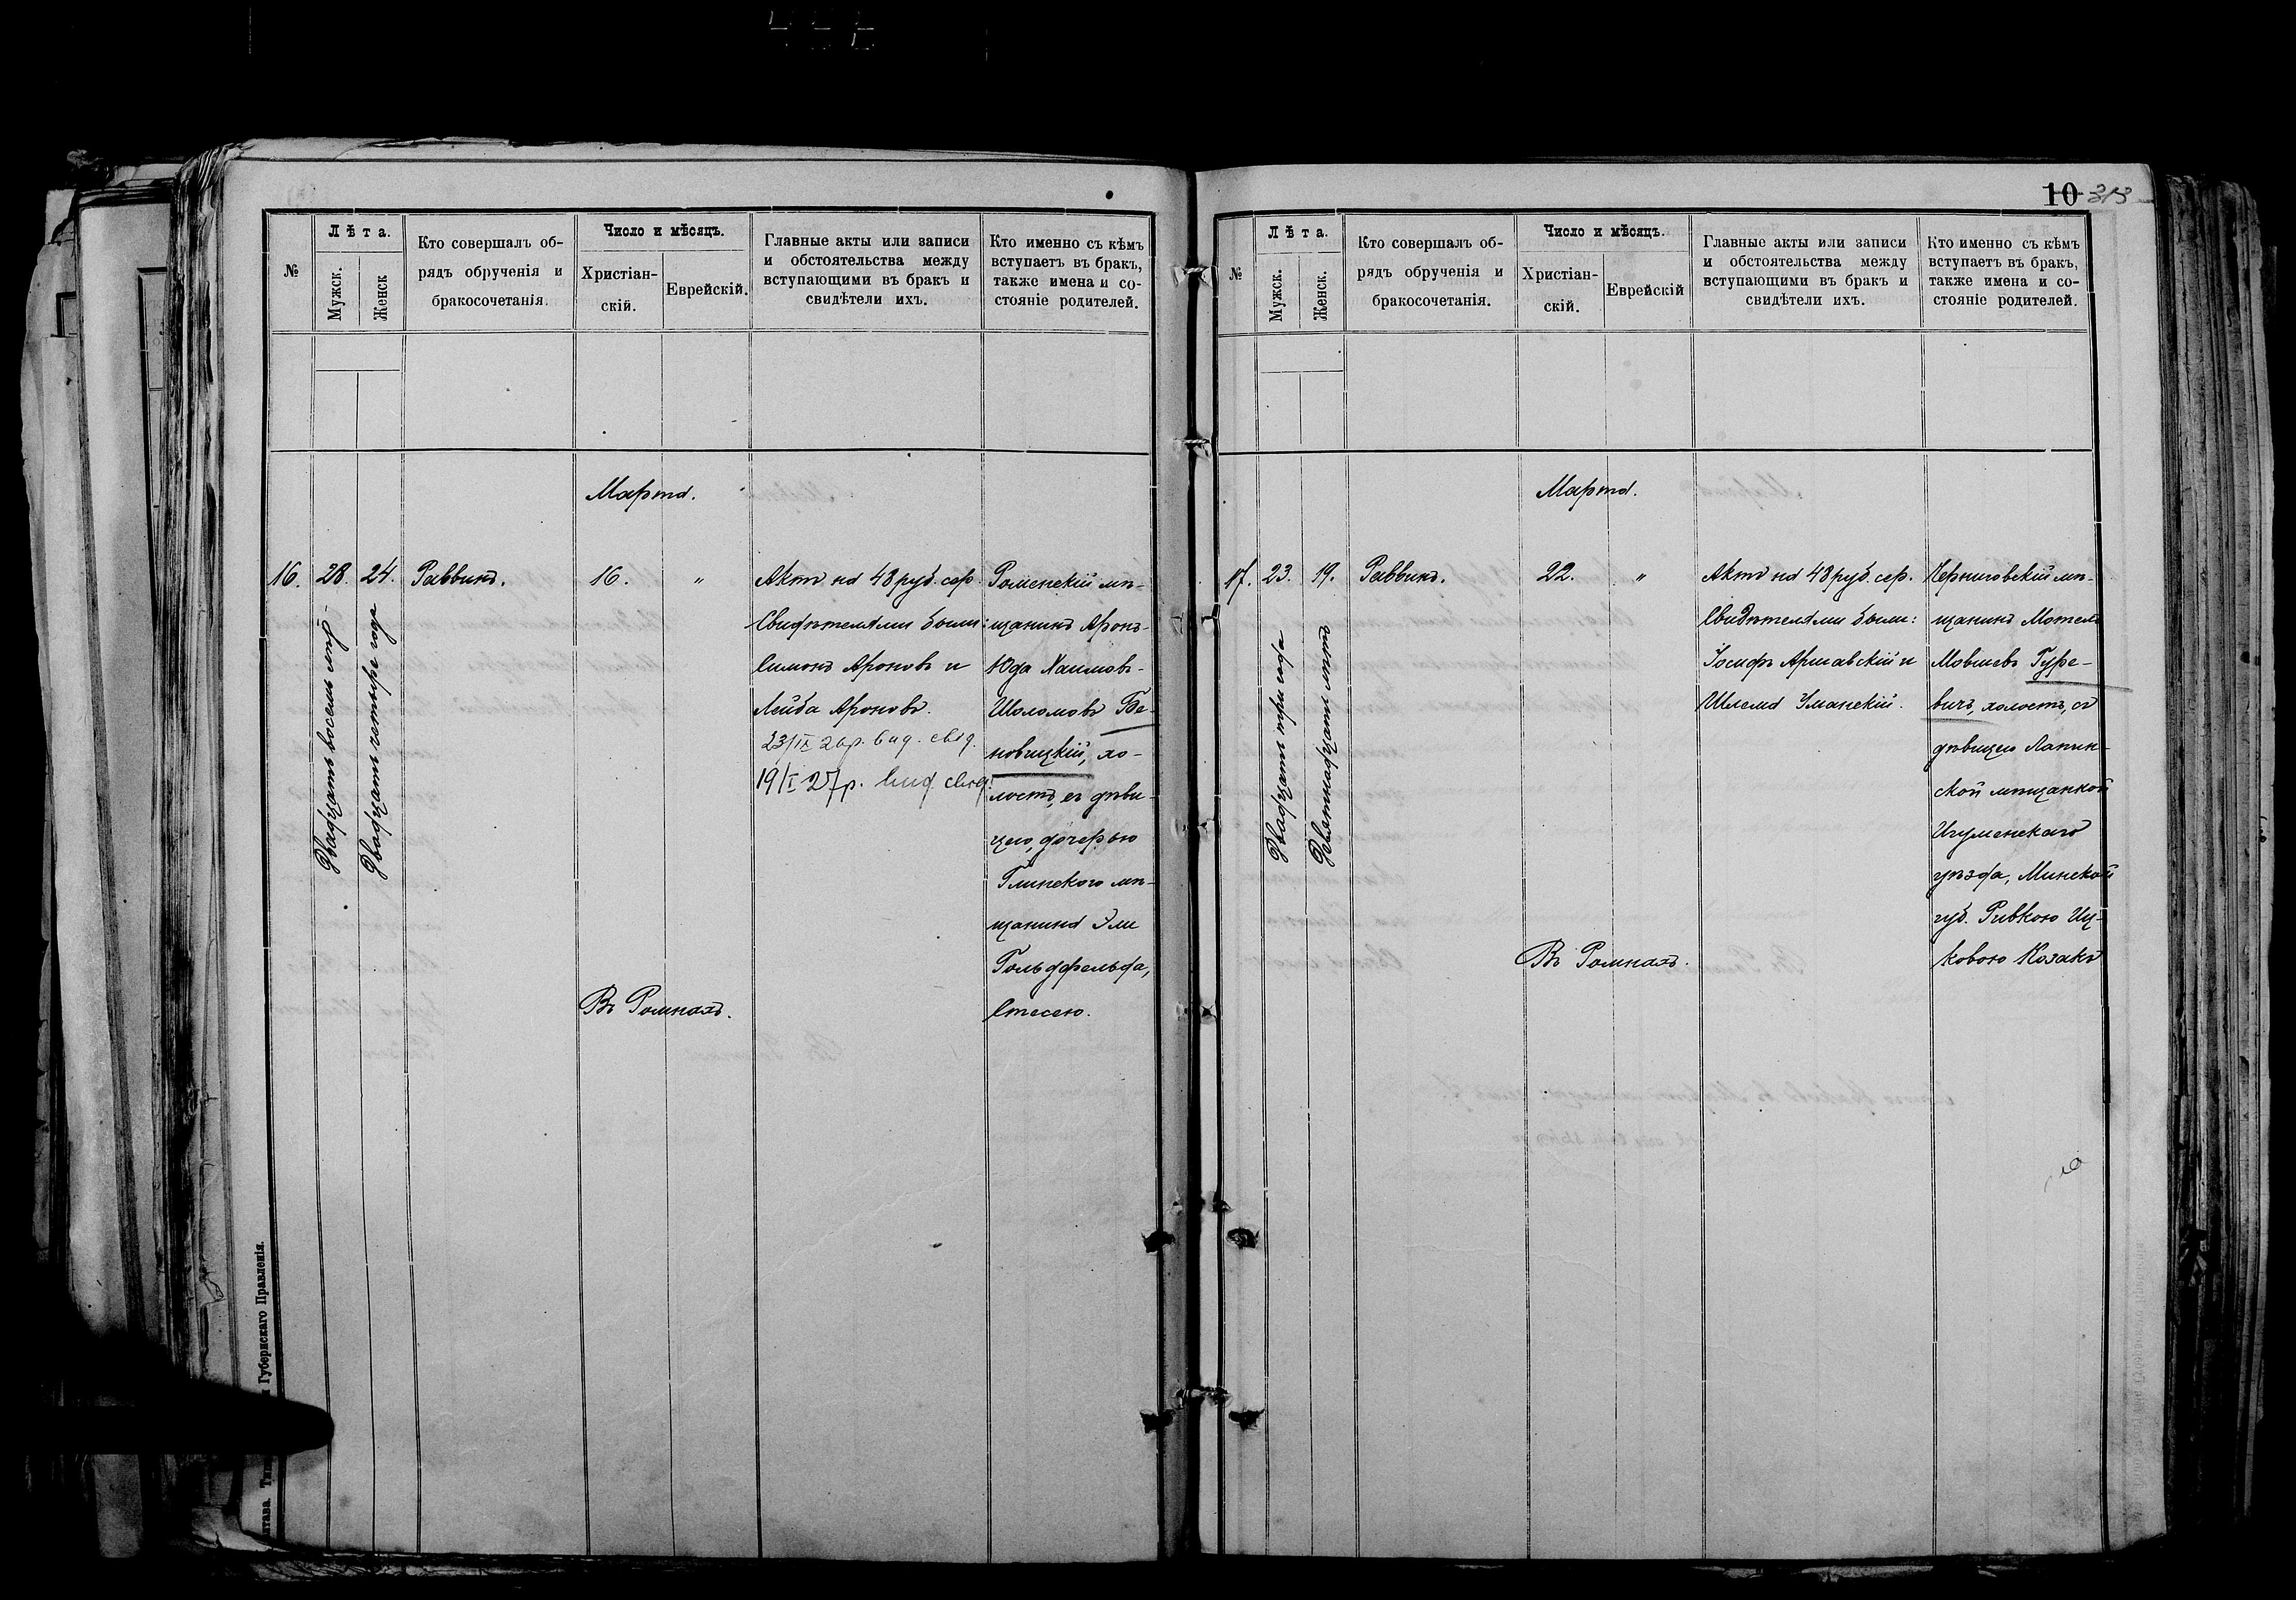 №
Лѣта.
Мужск.
Женск
Кто совершалъ об-
рядъ обрученія и
бракосочетанія.
Число и мѣсяцъ.
Христіан-
скій.
Еврейскій.
Главные акты или записи
и обстоятельства между
вступающими въ бракъ и
свидѣтели ихъ.
Кто именно съ кѣмъ
вступаетъ въ бракъ,
также имена и со-
стояніе родителей.
Марта.
16.
28.
Двадцать восемь лѣтъ
24.
Двадцать четыре года
Раввинъ.
16.
"
Въ Ромнахъ.
Актъ на 48 руб. сер.
Свидѣтелями были:
Симонъ Ароновъ и
Лейба Ароновъ.
23/IX 26р. выд. свід.
19/I 27р. вид. свід.
Роменскій мѣ-
щанинъ Аронъ-
Юда Хаимовъ-
Шоломовъ Бе-
новицкій, хо-
лостъ, съ дѣви-
цею, дочерью
Глинского мѣ-
щанина Эли
Гольдфельда,
Стесею.
Губернскаго Правленія.
10 313
№
Лѣта.
Мужск.
Женск.
Кто совершалъ об-
рядъ обрученія и
бракосочетанія.
Число и мѣсяцъ.
Христіан-
скій.
Еврейскій
Главные акты или записи
и обстоятельства между
вступающими въ бракъ и
свидѣтели ихъ.
Кто именно съ кѣмъ
вступаетъ въ бракъ,
также имена и со-
стояніе родителей.
Марта.
17.
23.
Двадцать три года
19.
Девятнадцать лѣтъ
Раввинъ.
22.
"
Въ Ромнахъ.
Актъ на 48 руб. сер.
Свидѣтелями были:
Іосифъ Аршавскій и
Шлема Уманскій.
Черниговскій мѣ-
щанинъ Мотель
Мовшевъ Гуре-
вичъ, холостъ, съ
дѣвицею Лапич-
ской мѣщанкой
Игуменскаго
уѣзда, Минской
губ. Ривкою Иц-
ковою Козакъ